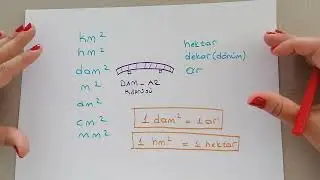 km²
hm²
dam²
m²
dm²
cm²
mm²
DAM - AR
Köprüsü
hektar
dekar (dönüm)
ar
1 dam² = 1 ar
1 hm² = 1 hektar